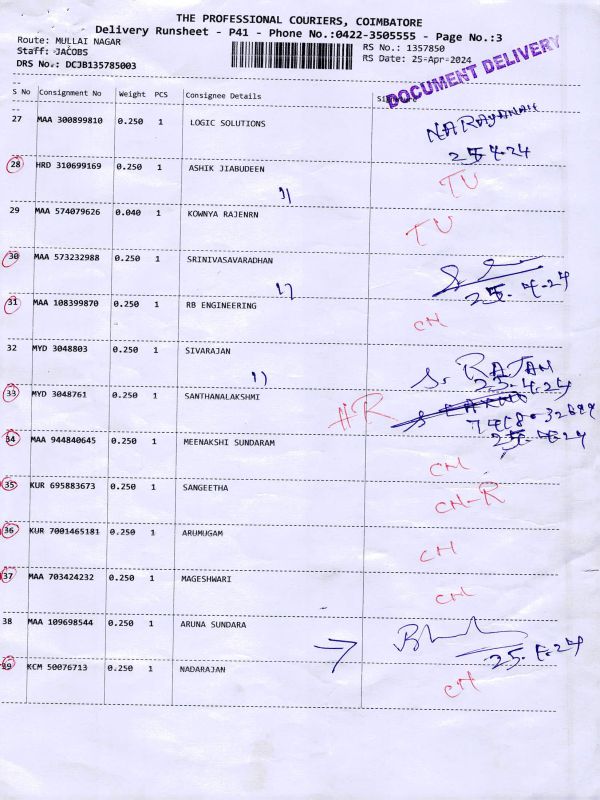 THE PROFESSIONAL COURIERS, COIMBATORE
Delivery Runsheet - P41 - Phone No.:0422-3505555 - Page No.:3
Route: MULLAI NAGAR RS No.: 1357850
Staff: JACOBS RS Date: 25-Apr-2024
DRS No.: DCJB135785003
DOCUMENT DELIVERY
S No Consignment No Weight PCS Consignee Details
27 MAA 300899810 0.250 1 LOGIC SOLUTIONS NARAYANAN
25.4.24
28 HRD 310699169 0.250 1 ASHIK JIABUDEEN TU
29 MAA 574079626 0.040 1 KOWNYA RAJENRN TU
30 MAA 573232988 0.250 1 SRINIVASAVARADHAN
25.4.24
31 MAA 108399870 0.250 1 RB ENGINEERING CH
32 MYD 3048803 0.250 1 SIVARAJAN S. RAJAN
25.4.24
33 MYD 3048761 0.250 1 SANTHANALAKSHMI
25.4.24
34 MAA 944840645 0.250 1 MEENAKSHI SUNDARAM CH
35 KUR 695883673 0.250 1 SANGEETHA CH-R
36 KUR 7001465181 0.250 1 ARUMUGAM CH
37 MAA 703424232 0.250 1 MAGESHWARI CH
38 MAA 109698544 0.250 1 ARUNA SUNDARA
25.4.24
39 KCM 50076713 0.250 1 NADARAJAN CH